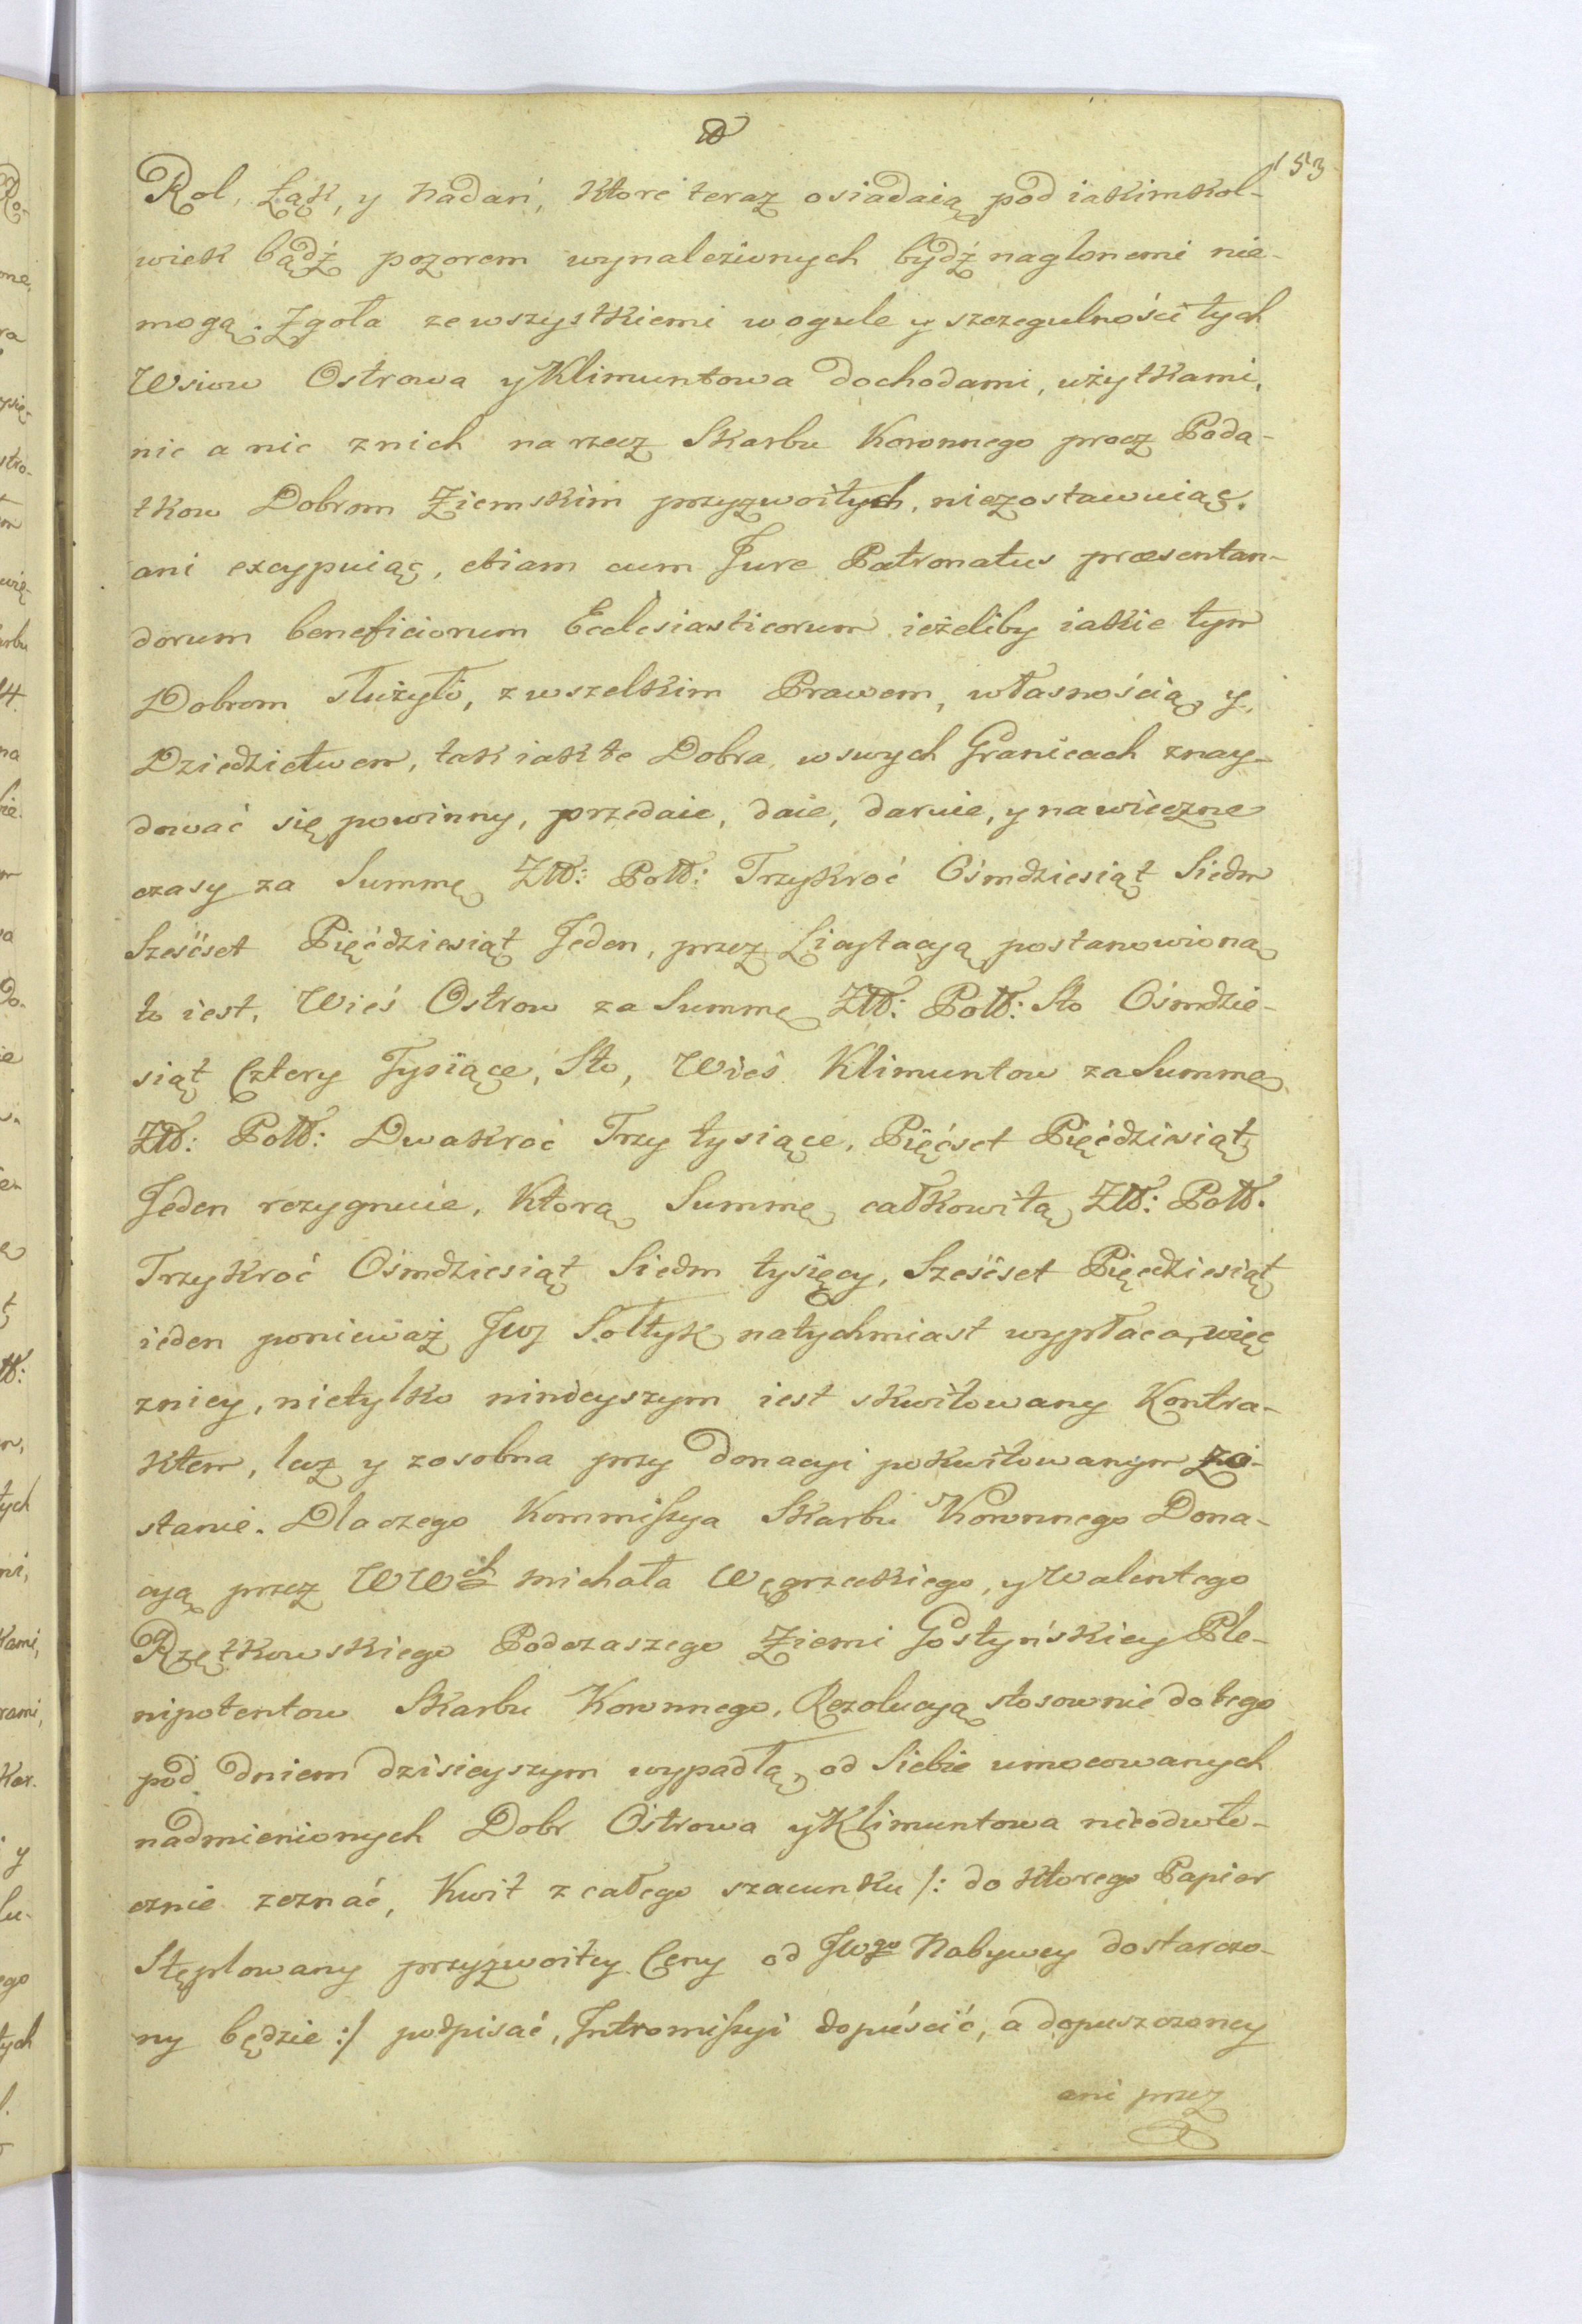 153
Rol, Łąk, y Nadań, ktore teraz osiadaią pod iakimkol-
wiek bądź pozorem wynalezionych bydź naglonemi nie-
mogą. Zgoła ze wszystkiemi w ogule y szczegulności tych
Wsiow Ostrowa y Klimuntowa dochodami, użytkami,
nic a nic z nich na rzecz Skarbu Koronnego procz Poda-
tkow Dobrom Ziemskim przyzwoitych, niezostawuiąc,
ani excypuiąc, etiam cum Jure Patronatus præsentan-
dorum beneficiorum Ecclesiasticorum ieżeliby iakie tym
Dobrom służyło, z wszelkim Prawem, własnością, y,
Dziedzictwem, tak iak te Dobra w swych Granicach znay-
dować się powinny, przedaie, daie, daruie, y na wieczne
czasy za Summę Złł: Poll: Trzykroć Ośmdziesiąt Siedm
Sześćset Pięćdziesiąt Jeden, przez Licytacyą postanowioną
to iest, Wieś Ostrow za Summę Złł: Poll: Sto Ośmdzie-
siąt Cztery Tysiące, Sto, Wieś Klimuntow za Summę
Złł: Poll: Dwakroć Trzy tysiące, Pięćset Pięćdziesiąt
Jeden rezygnuie, ktorą Summę całkowitą Złł: Poll.
Trzykroć Ośmdziesiąt Siedm tysięcy, Sześćset Pięcdziesiąt
ieden ponieważ JWJ Sołtyk natychmiast wypłaca, więc
z niey, nietylko ninieyszym iest skwitowany Kontra-
ktem, lecz y z osobna przy Donacyi pokwitowanym zo-
stanie. Dlaczego Kommissya Skarbu Koronnego Dona-
cyą przez WWch Michała Węgrzeckiego, y Walentego
Rzętkowskiego Podczaszego Ziemi Gostyńskiey Ple-
nipotentow Skarbu Koronnego, Rezolucyą stosownie do tego
pod dniem dzisieyszym wypadłą, od Siebie umocowanych
nadmienionych Dobr Ostrowa y Klimuntowa nieodwło-
cznie zeznać, Kwit z całego szacunku /: do ktorego Papier
Stęplowany przyzwoitey Ceny od JWgo Nabywcy dostarczo-
ny będzie :/ podpisać, Intromissyi dopuścić, a dopuszczoney
ani przez